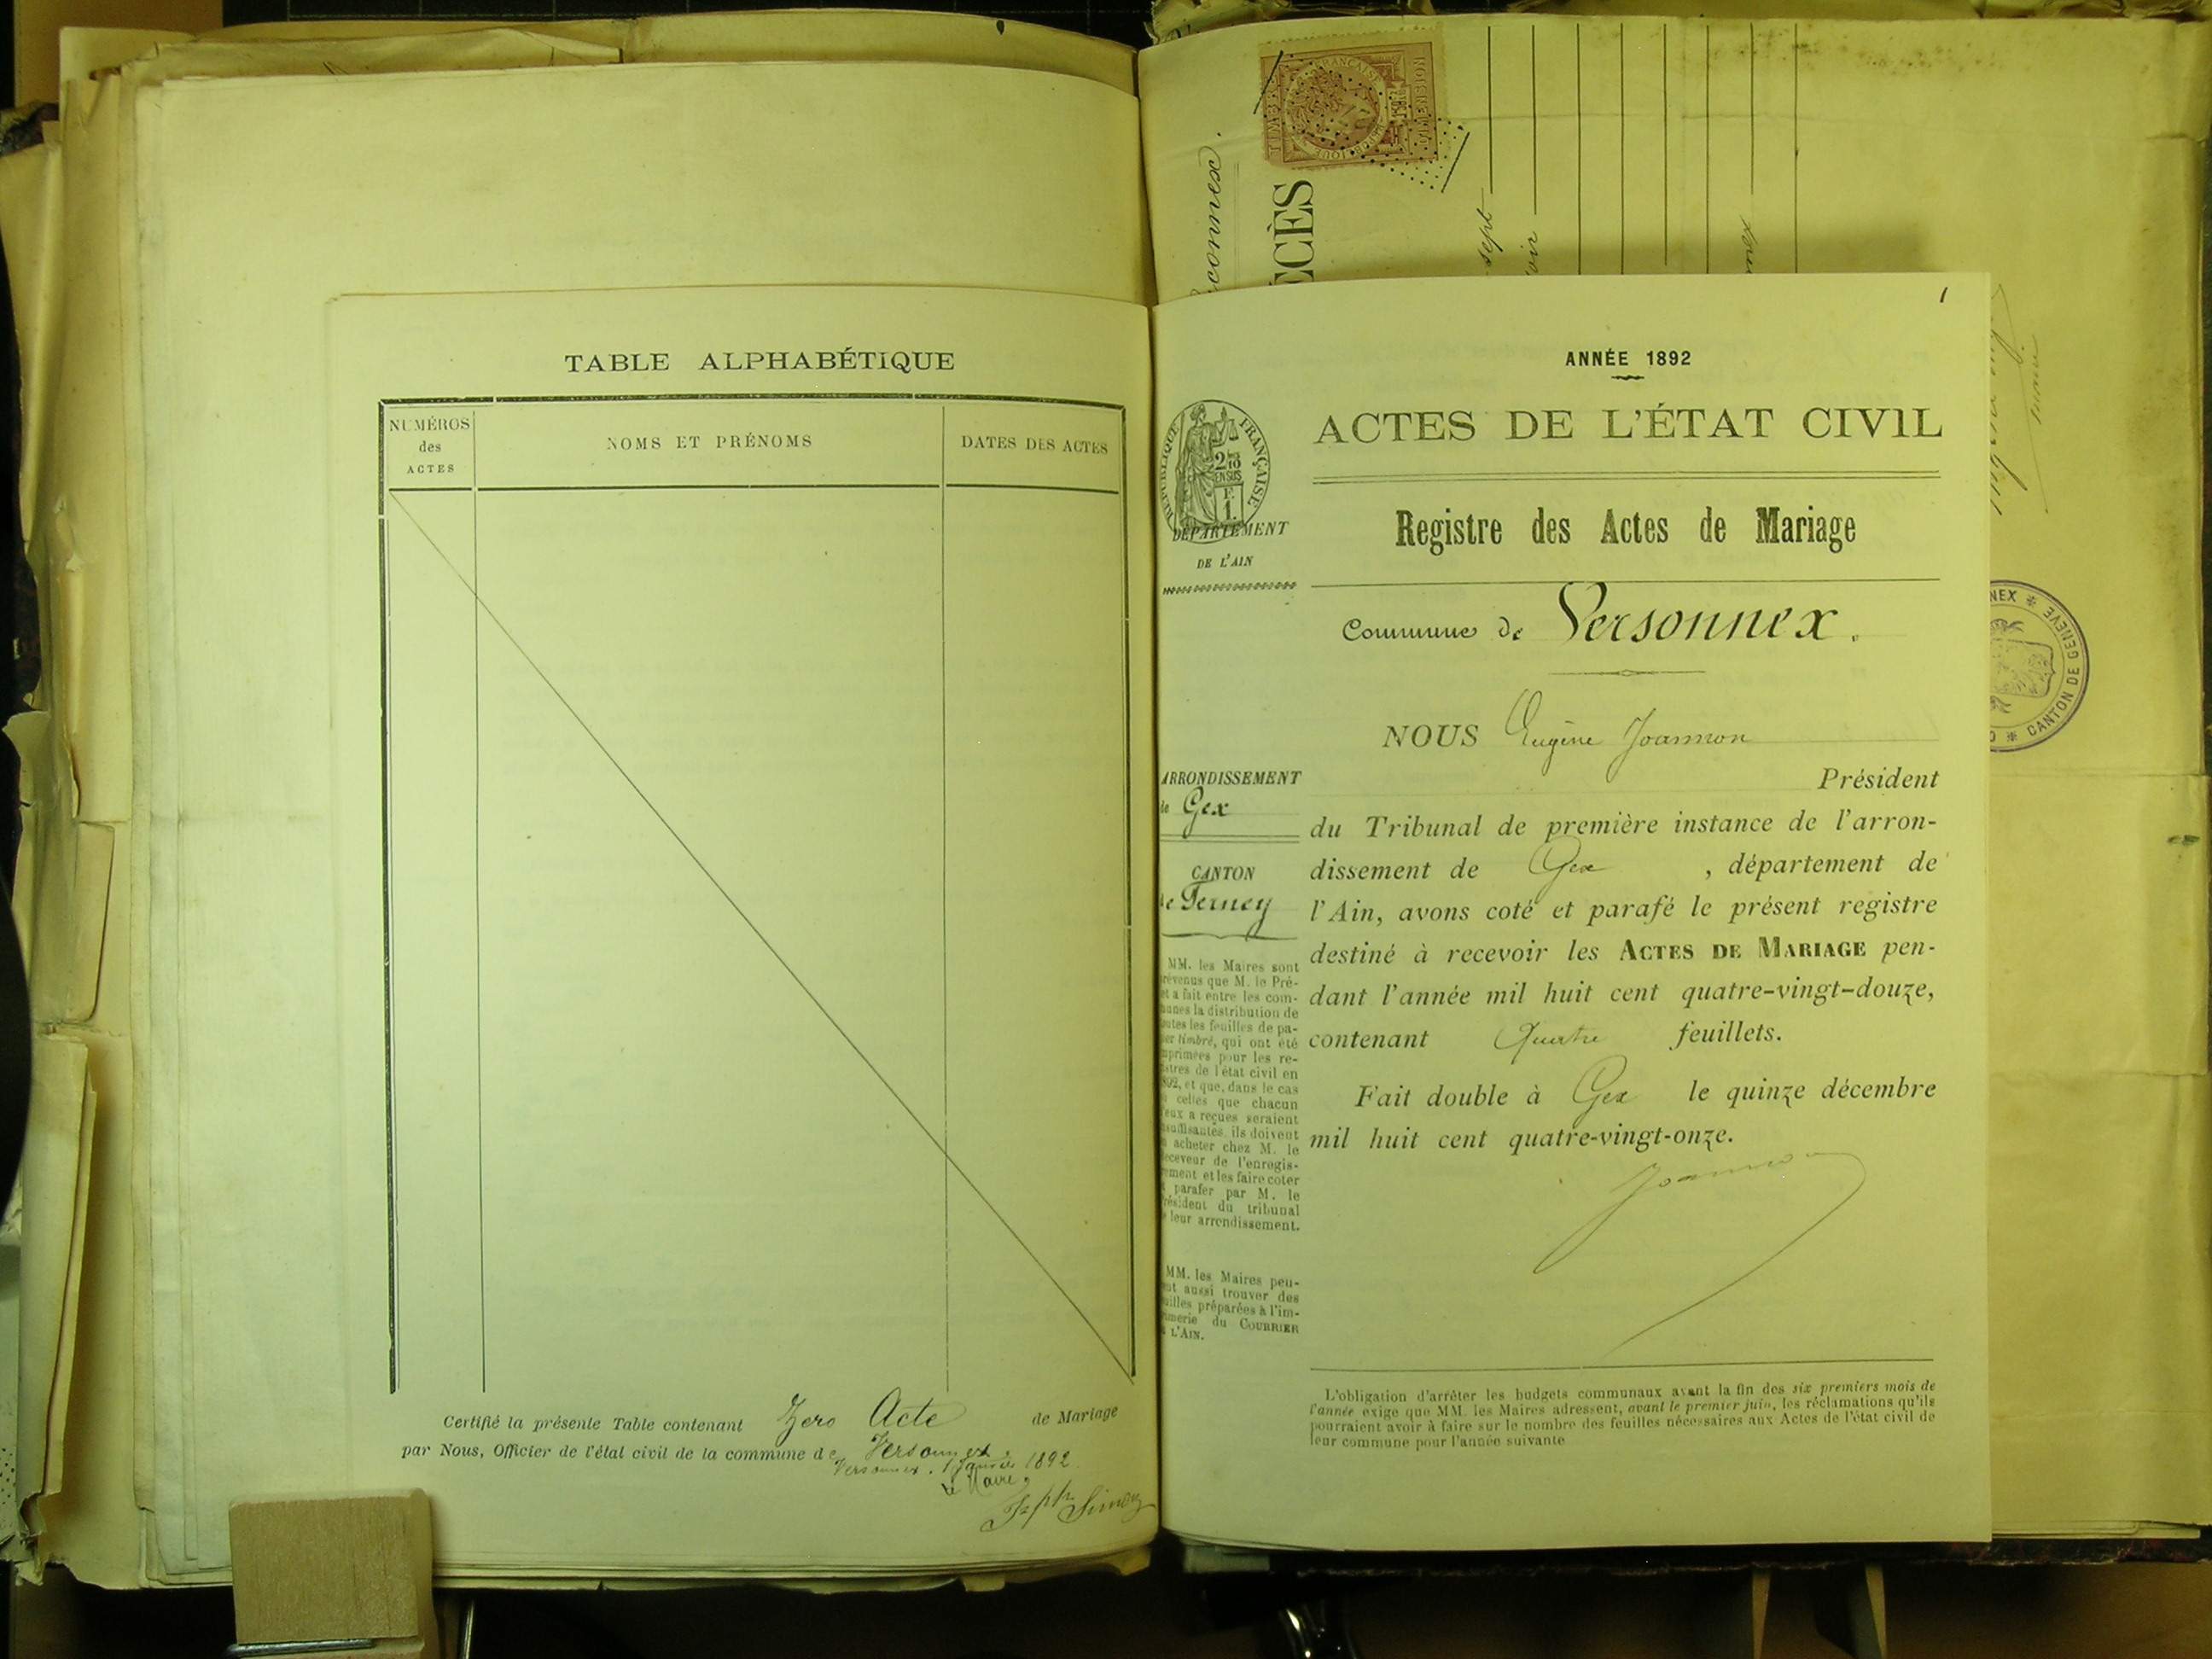 TABLE ALPHABÉTIQUE
NUMÉROS
des
ACTES
NOMS ET PRÉNOMS
DATES DES ACTES
Certifié la présente Table contenant Zero Acte de Mariage
par Nous, Officier de l'état civil de la commune de Versonnex
Versonnex. 1 Janvier 1892
Le Maire,
Jph Simoz
connex.
ÉCÈS
TIMBRE
FRANÇAISE
DIMENSION
sept
oir
nex
1
ANNÉE 1892
ACTES DE L'ÉTAT CIVIL
Registre des Actes de Mariage
Commune de Versonnex.
RÉPUBLIQUE FRANÇAISE
DÉPARTEMENT
DE L'AIN
ARRONDISSEMENT
de Gex
CANTON
de Ferney
NOUS Eugène Joannon
Président
du Tribunal de première instance de l'arron-
dissement de Gex , département de
l'Ain, avons coté et parafé le présent registre
destiné à recevoir les ACTES DE MARIAGE pen-
dant l'année mil huit cent quatre-vingt-douze,
contenant Quatre feuillets.
Fait double à Gex le quinze décembre
mil huit cent quatre-vingt-onze.
Joannon
MM. les Maires sont
prévenus que M. le Pré-
et a fait entre les com-
munes la distribution de
toutes les feuilles de pa-
ier timbré, qui ont été
mprimées pour les re-
istres de l'état civil en
892, et que, dans le cas
ù celles que chacun
'eux a reçues seraient
nsuffisantes, ils doivent
n acheter chez M. le
eceveur de l'enregis-
ement et les faire coter
t parafer par M. le
résident du tribunal
e leur arrondissement.
MM. les Maires peu-
ent aussi trouver des
uilles préparées à l'im-
imerie du COURRIER
L'AIN.
L'obligation d'arrêter les budgets communaux avant la fin des six premiers mois de
l'année exige que MM. les Maires adressent, avant le premier juin, les réclamations qu'ils
pourraient avoir à faire sur le nombre des feuilles nécessaires aux Actes de l'état civil de
leur commune pour l'année suivante
NEX * CANTON DE GENÈVE *